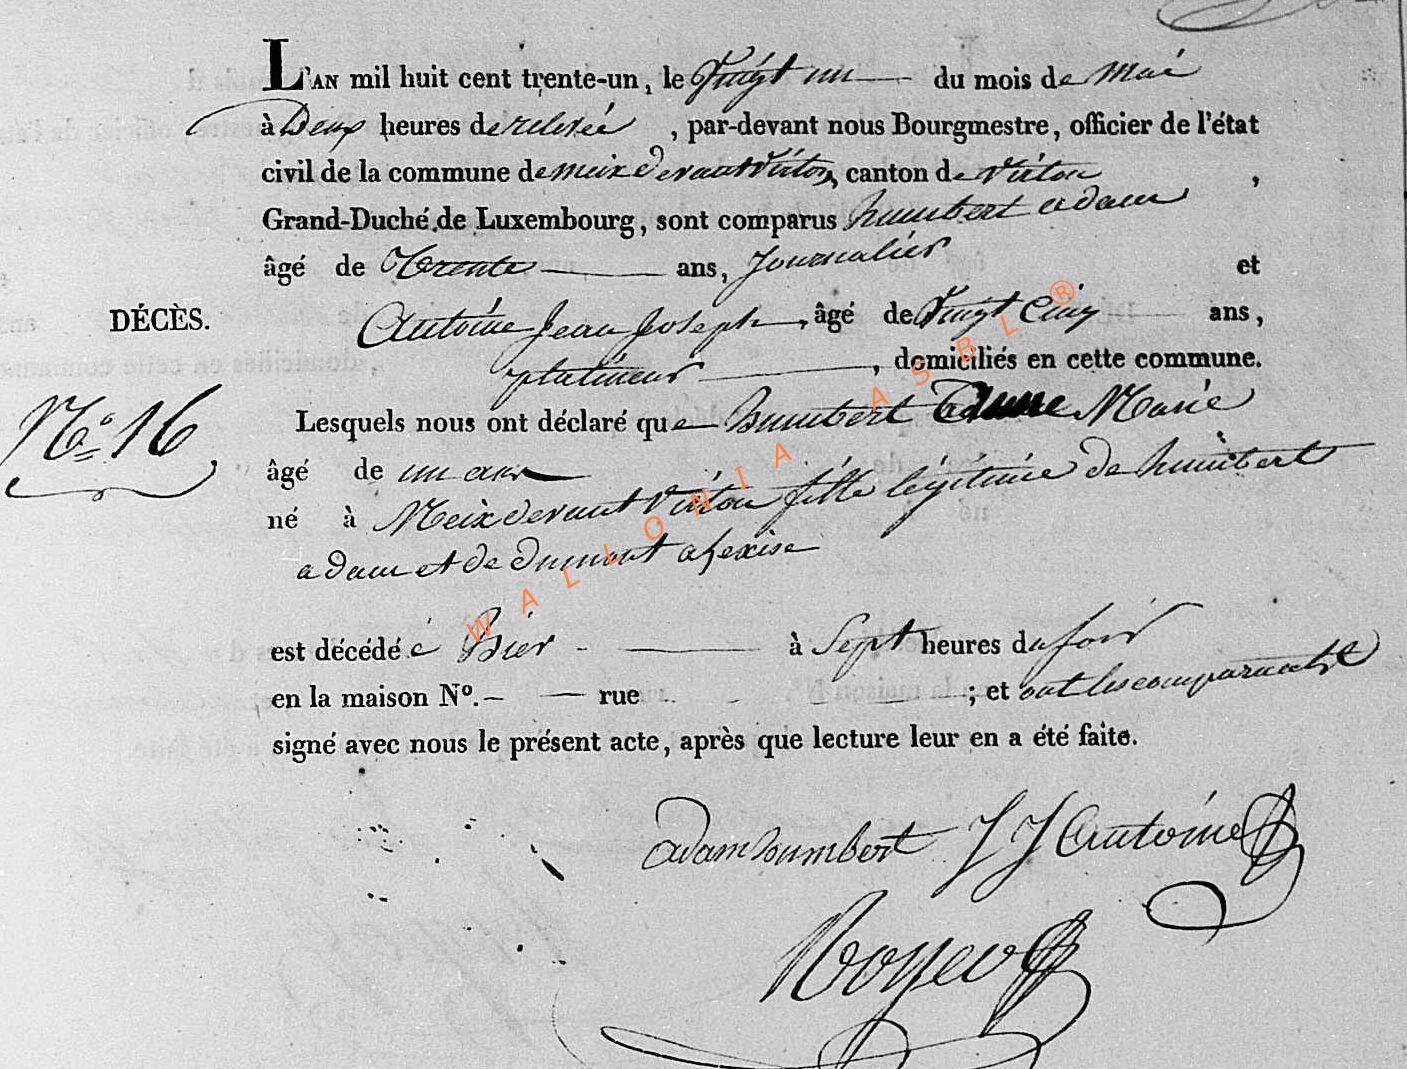 L'AN mil huit cent trente-un, le Vingt un du mois de Mai
à Deux heures de relevée, par-devant nous Bourgmestre, officier de l'état
civil de la commune de meix devant Virton, canton de Virton,
Grand-Duché de Luxembourg, sont comparus humbert adam
âgé de Trente ans, Journalier et
Antoine Jean Joseph, âgé de Vingt Cinq ans,
platineur, domiciliés en cette commune.
DÉCÈS.
N.o 16,
Lesquels nous ont déclaré que humbert Marie
âgé de un ans
né à Meix devant Virton fille légitime de humbert
adam et de dumont
est décédé hier à Sept heures du soir
en la maison No. — rue ; et ont les comparants
signé avec nous le présent acte, après que lecture leur en a été faite.
adam humbert J J Antoine
WALLONIA ASBL ®